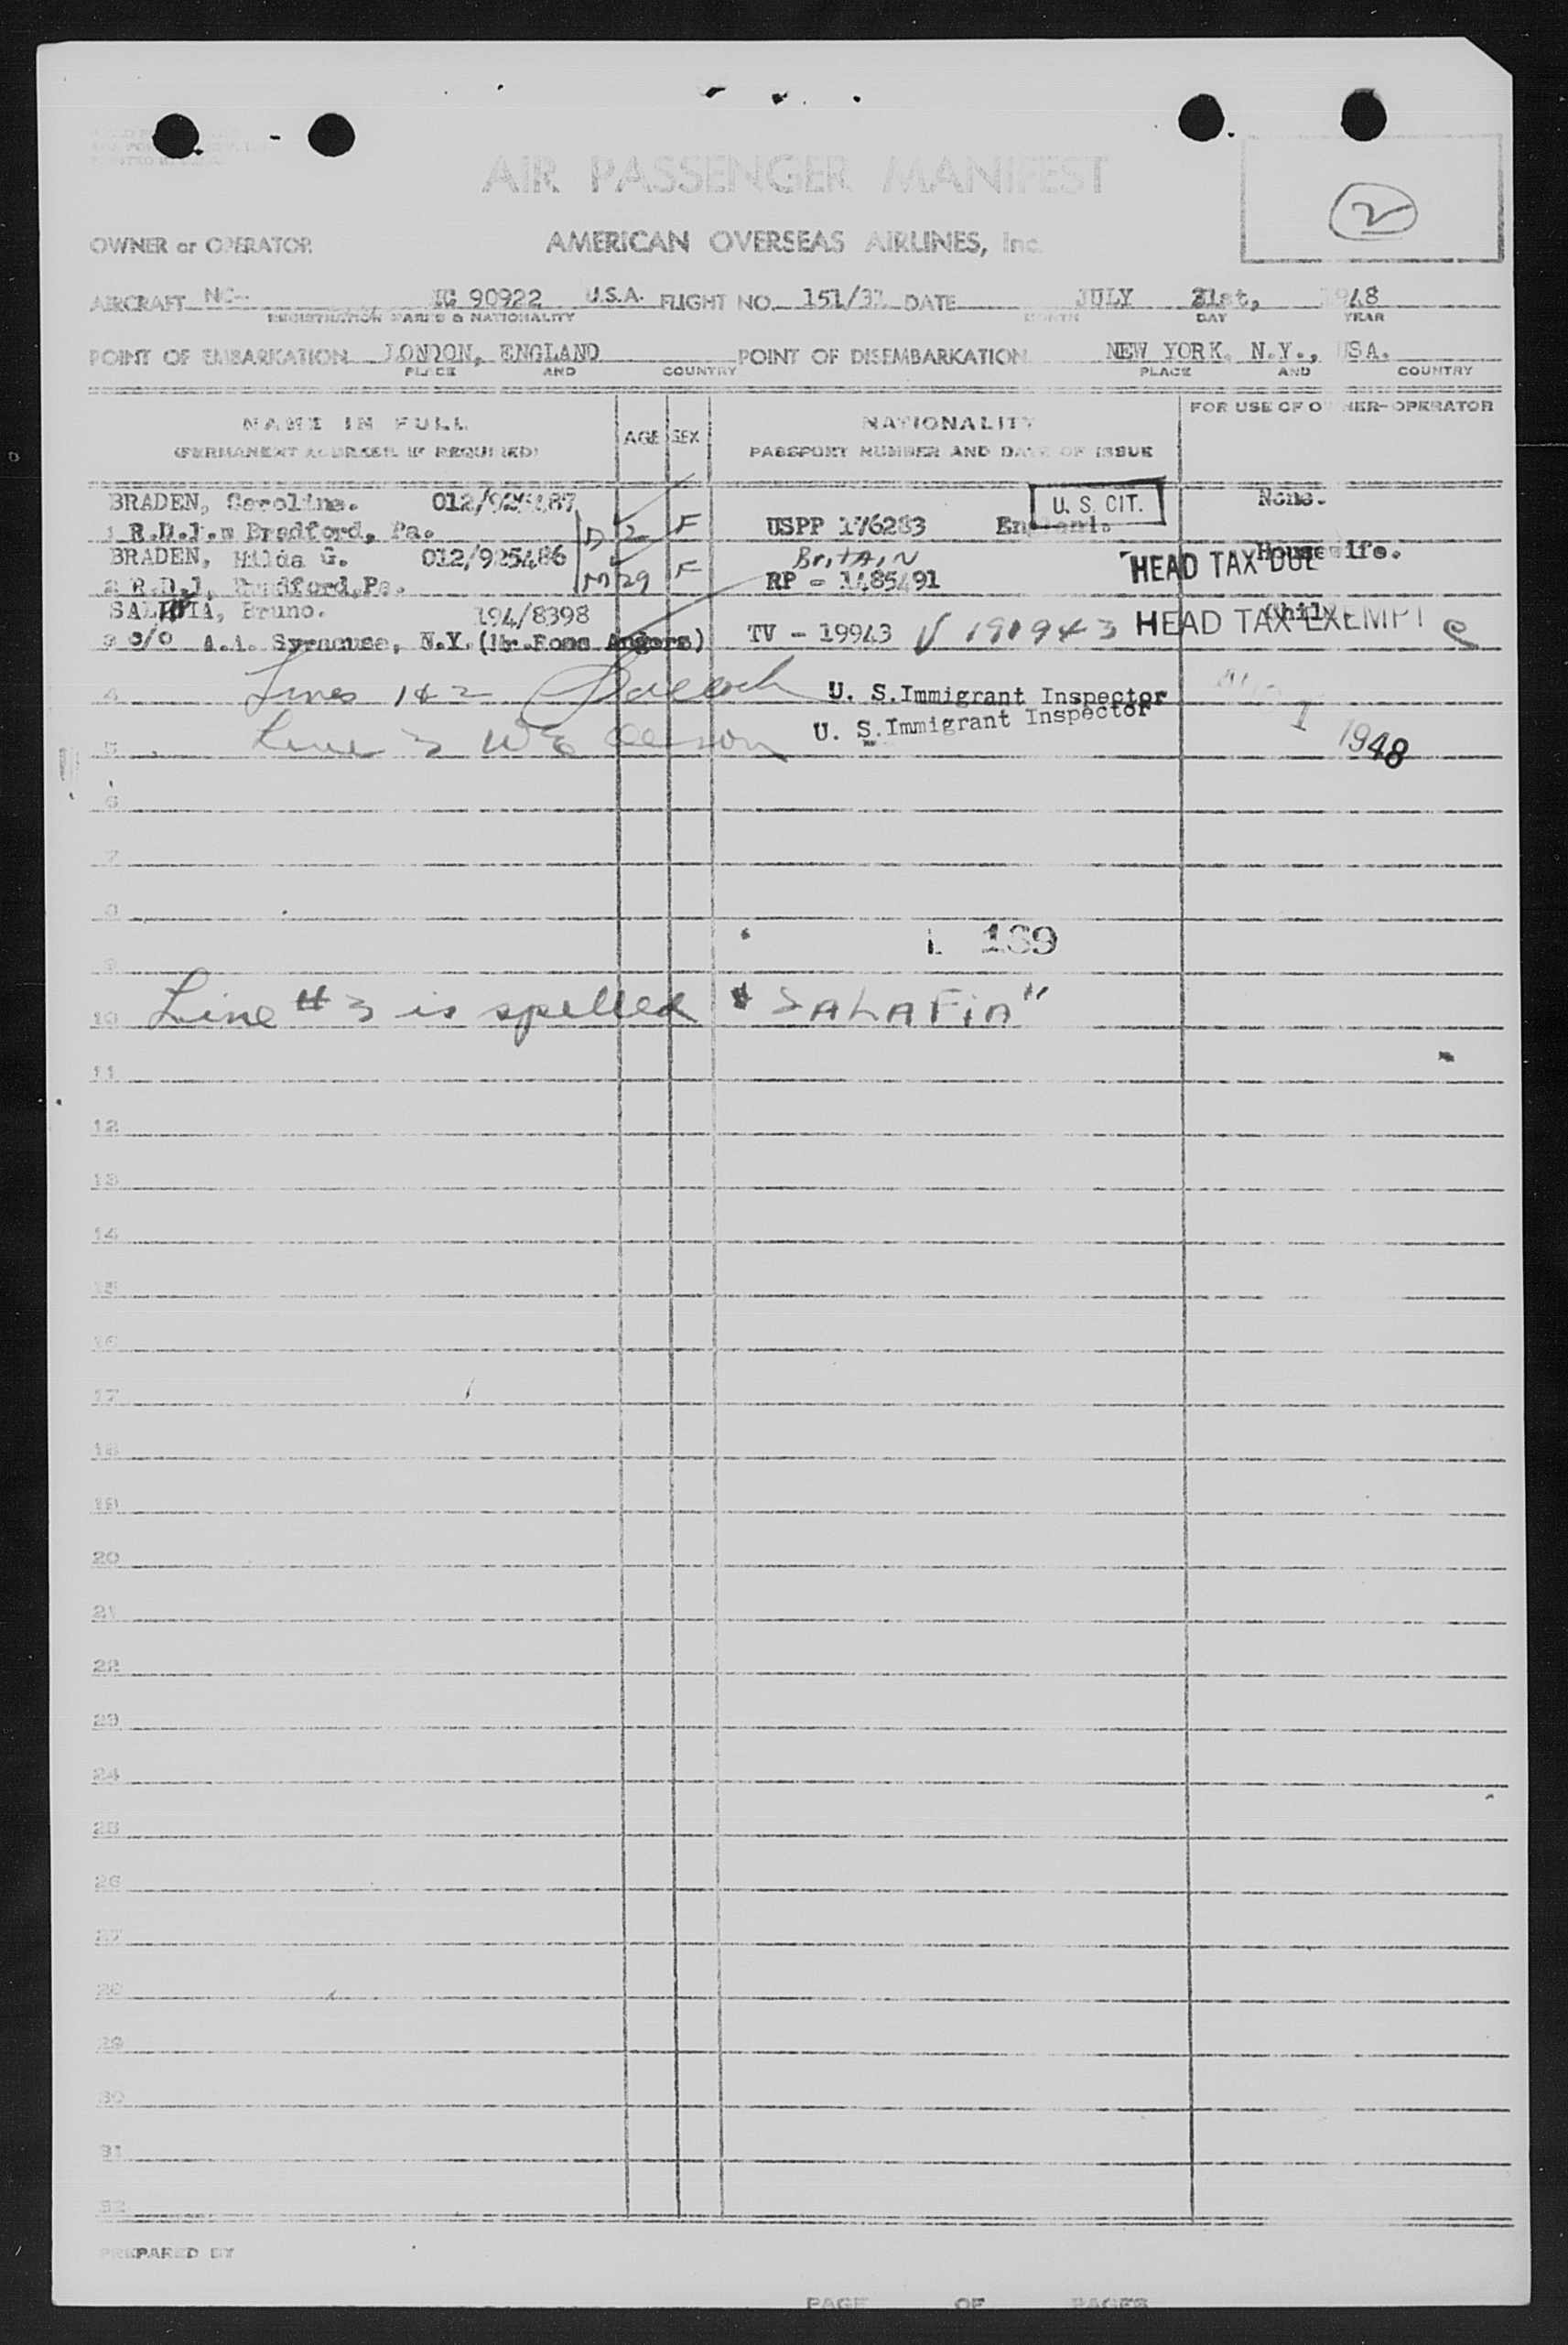 AIR PASSENGER MANIFEST
2
OWNER or OPERATOR AMERICAN OVERSEAS AIRLINES, Inc.
AIRCRAFT NC- NC 90922 U.S.A. FLIGHT NO. 151/31 DATE JULY 31st, 1948
REGISTRATION MARKS & NATIONALITY MONTH DAY YEAR
POINT OF EMBARKATION LONDON, ENGLAND POINT OF DISEMBARKATION NEW YORK, N.Y., USA.
PLACE AND COUNTRY PLACE AND COUNTRY
NAME IN FULL AGE SEX NATIONALITY FOR USE OF OWNER-OPERATOR
(PERMANENT ADDRESS IF REQUIRED) PASSPORT NUMBER AND DATE OF ISSUE
BRADEN, Caroline. 012/925487 U. S. CIT. None.
1 R.D.1. Bradford, Pa. 2 F USPP 176283 England.
BRADEN, Hilda G. 012/925486 BritAiN Housewife.
2 R.D.1, Bradford, Pa. M 29 F RP - 1485491 HEAD TAX DUE
SALAFIA, Bruno. 194/8398 Child
3 c/o A.A. Syracuse, N.Y. (Mr. Ross Angers) TV - 19943 V 190943 HEAD TAX EXEMPT
4 Lines 1 & 2 U. S. Immigrant Inspector
5 Line 3 U. S. Immigrant Inspector 1 1948
6
7
8
1 189
9
10 Line # 3 is spelled "SALAFiA"
11
12
13
14
15
16
17
18
19
20
21
22
23
24
25
26
27
28
29
30
31
32
PREPARED BY
PAGE OF PAGES